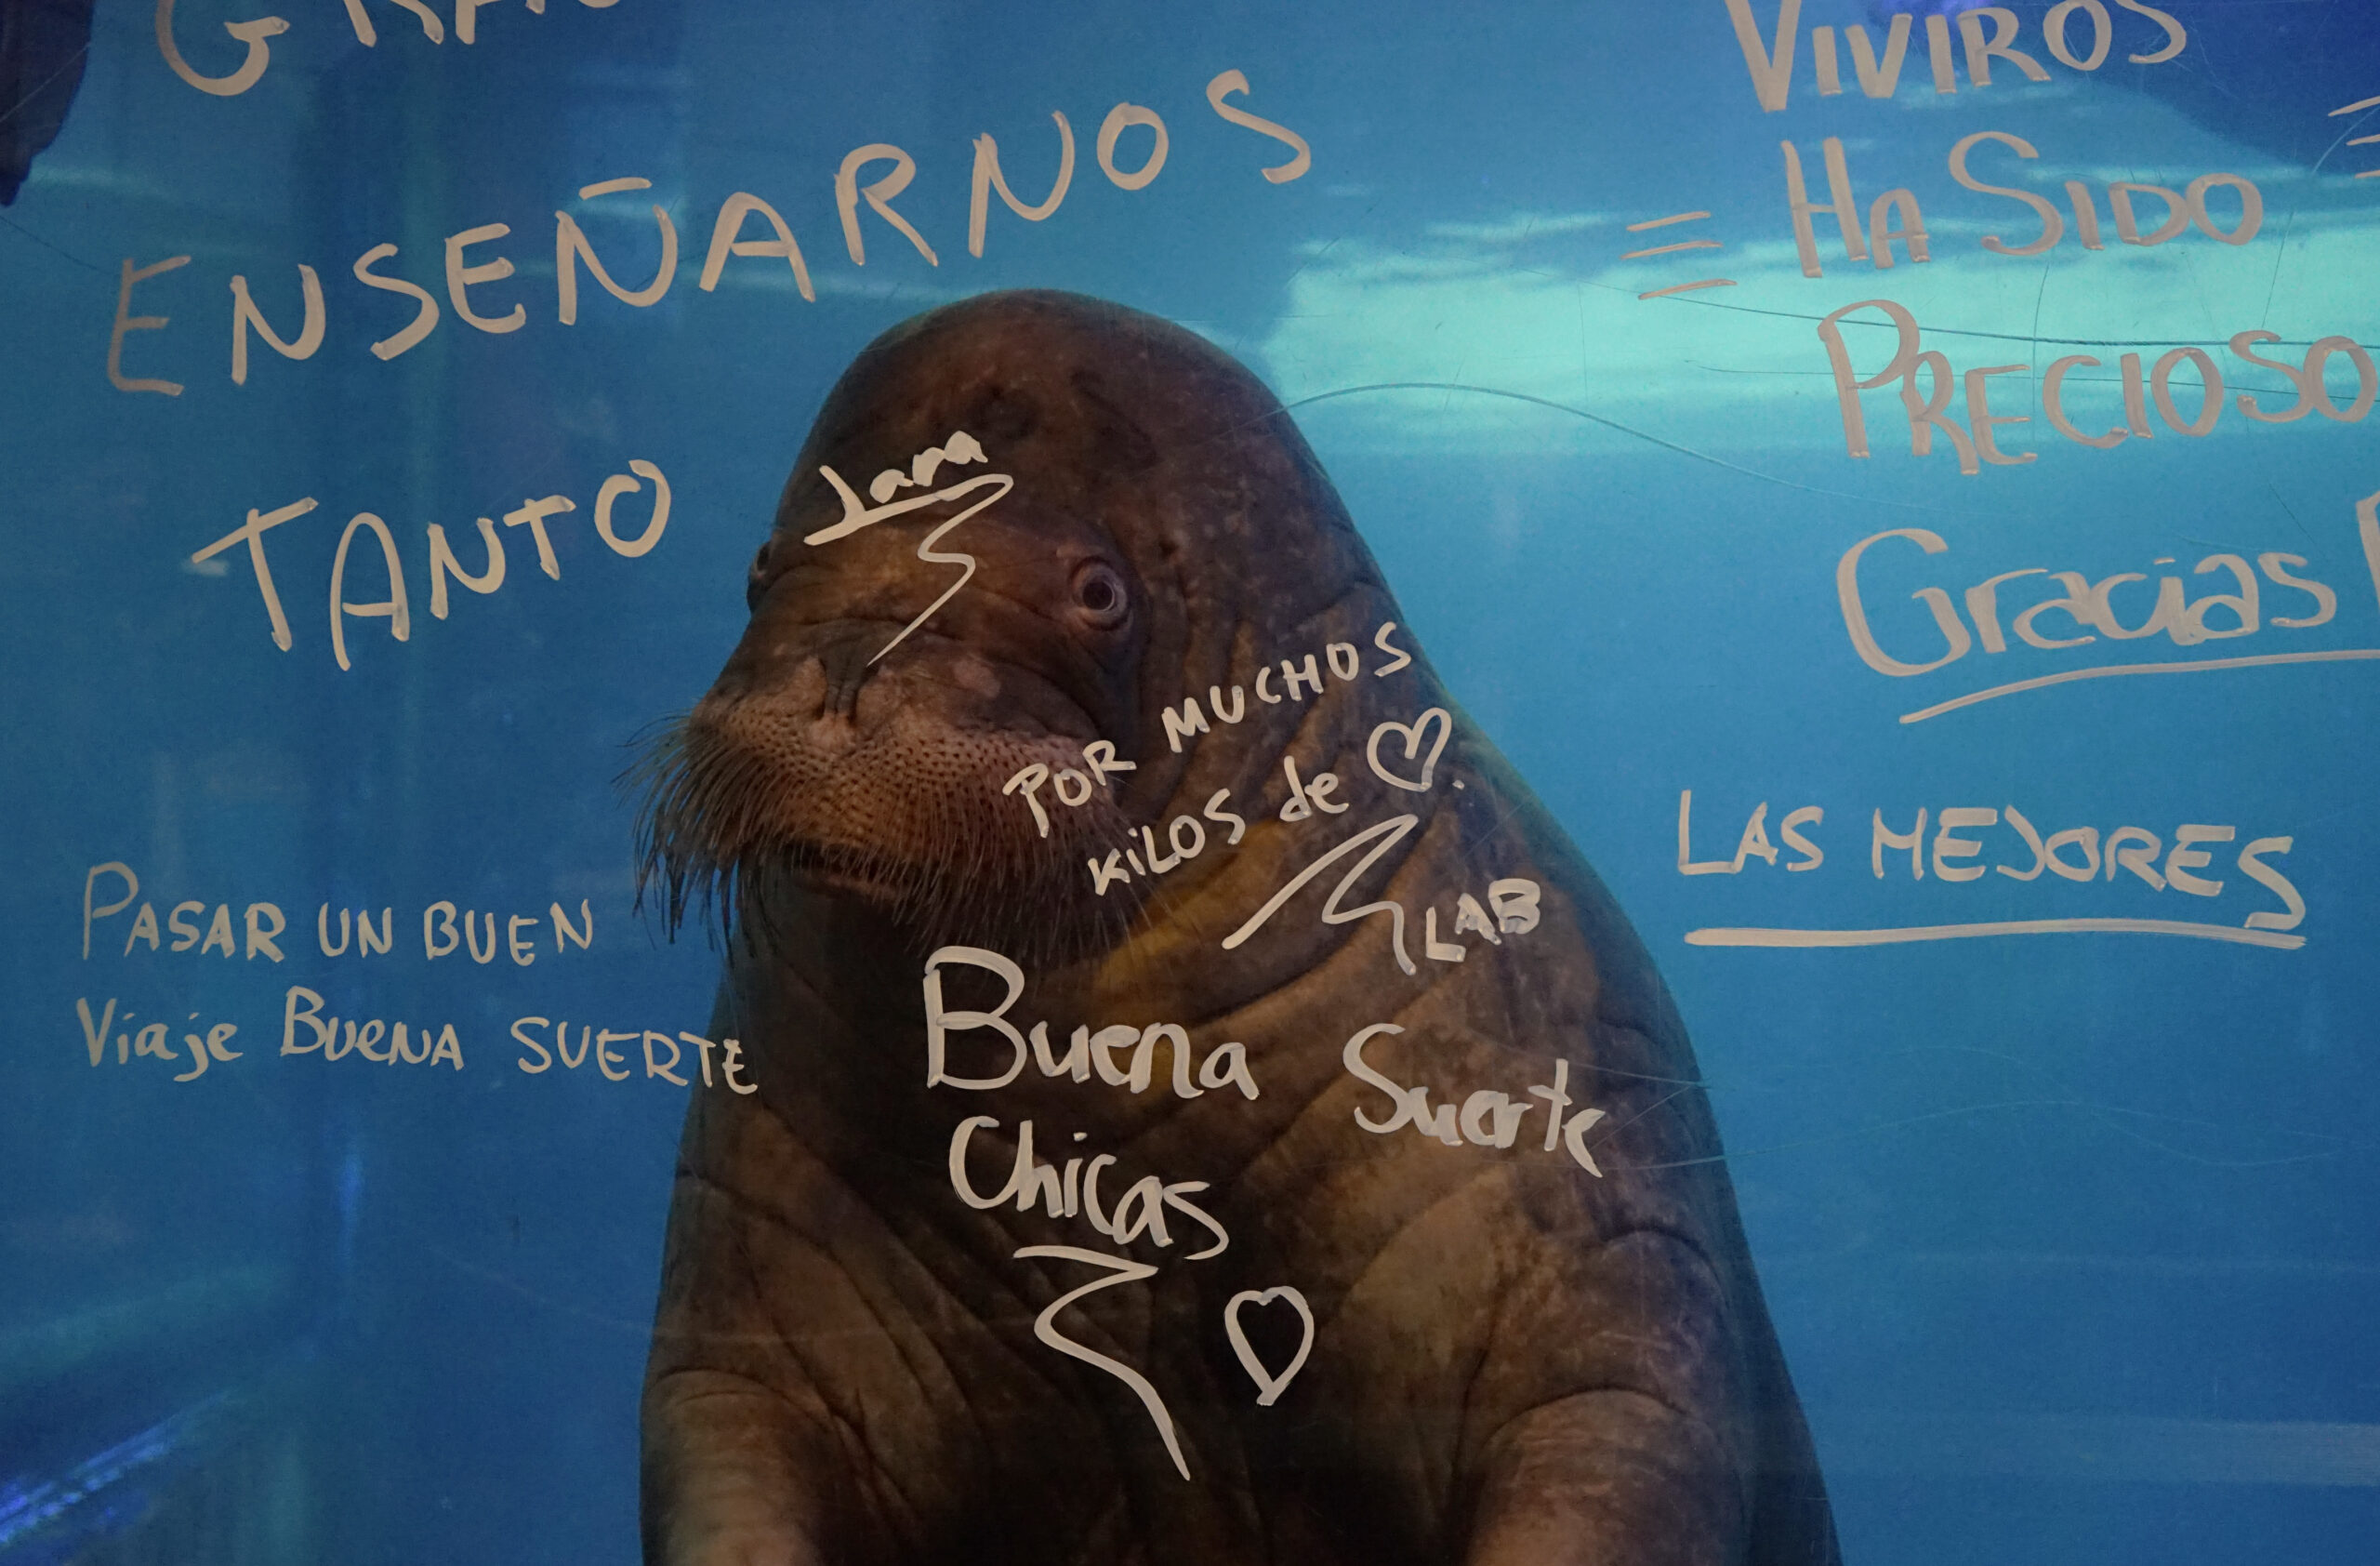 ENSEÑARNOS
TANTO
Jana
POR MUCHOS
KiLOS de ♡.
LAB
PASAR UN BUEN
Viaje BUENA SUERTE
Buena Suerte
Chicas
♡
VIVIROS
HA SIDO
PRECIOSO
Gracias
LAS MEJORES